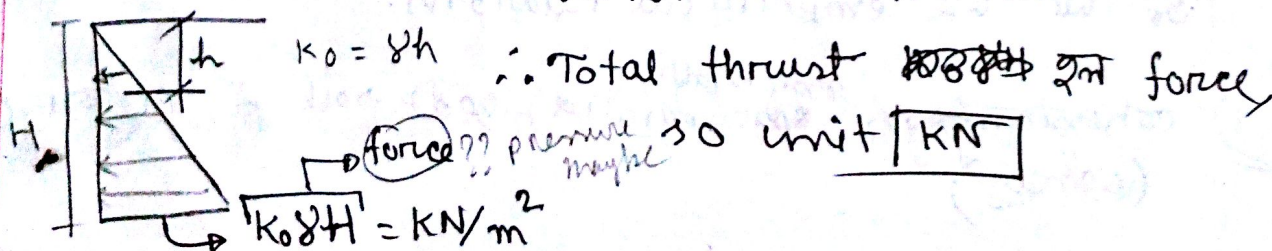 h K₀ = γh ∴ Total thrust হল force,
H → force?? pressure maybe so unit KN
K₀γH = KN/m²